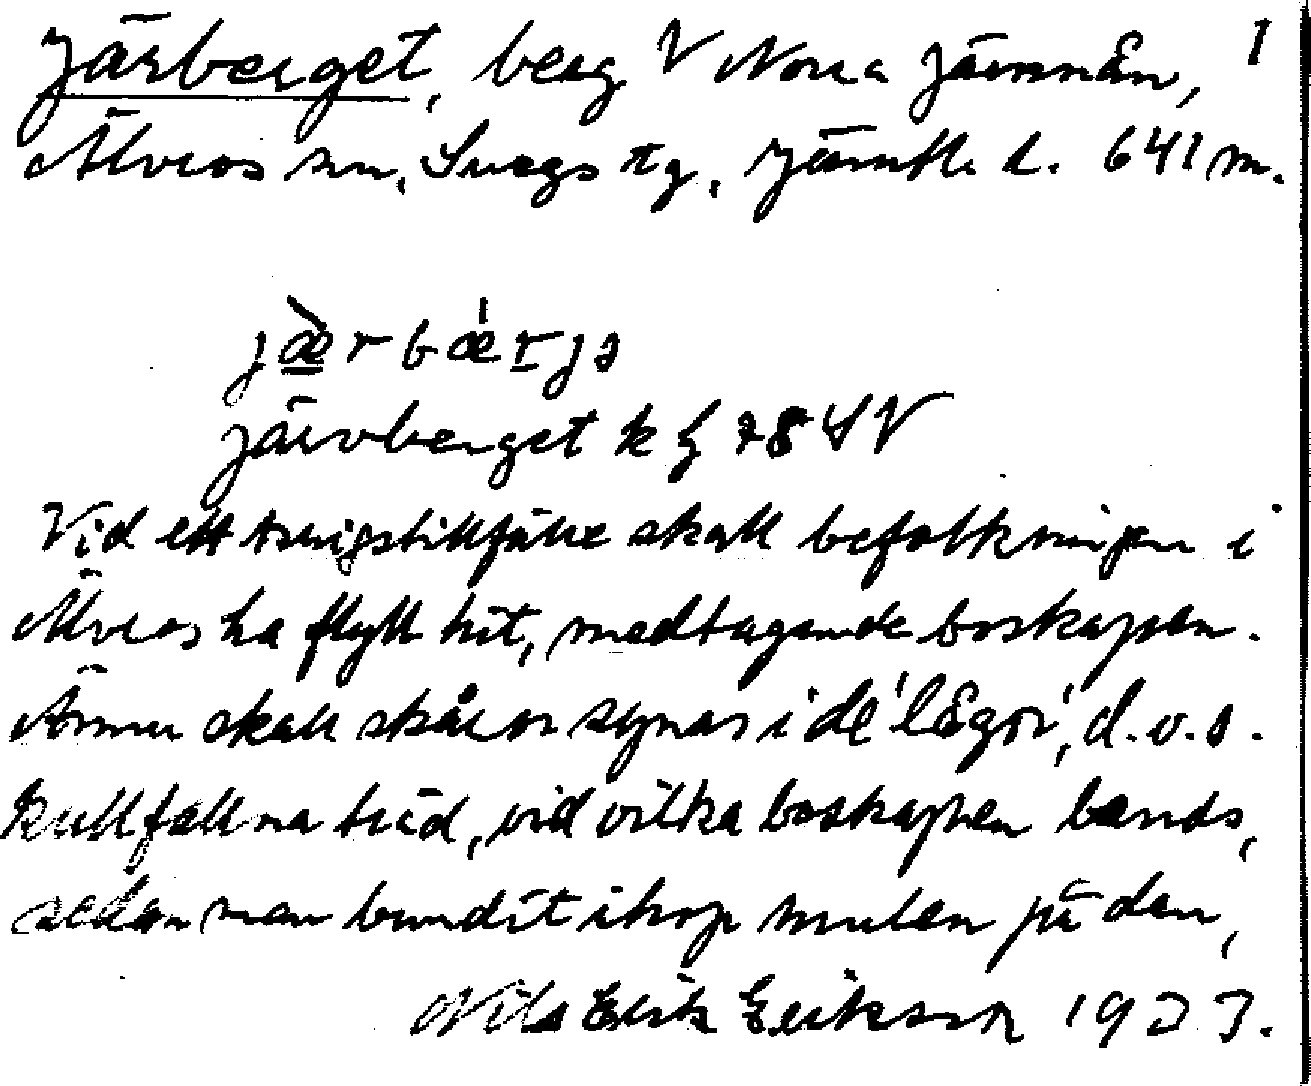 Järberget, berg V Norra Järnmån, 1
Älvros sn, Svegs tg, Jämtl. l. 641 m.
jæ̀rbæ̍rjə
Järvberget k bl 78 SV
Vid ett krigstillfälle skall befolkningen i
Älvros ha flytt hit, medtagande boskapen.
Ännu skall skåror synas i de 'lågor', d.v.s.
kullfallna träd, vid vilka boskapen bands,
sedan man bundit ihop mulen på den,
Nils Erik Eriksson 1933.